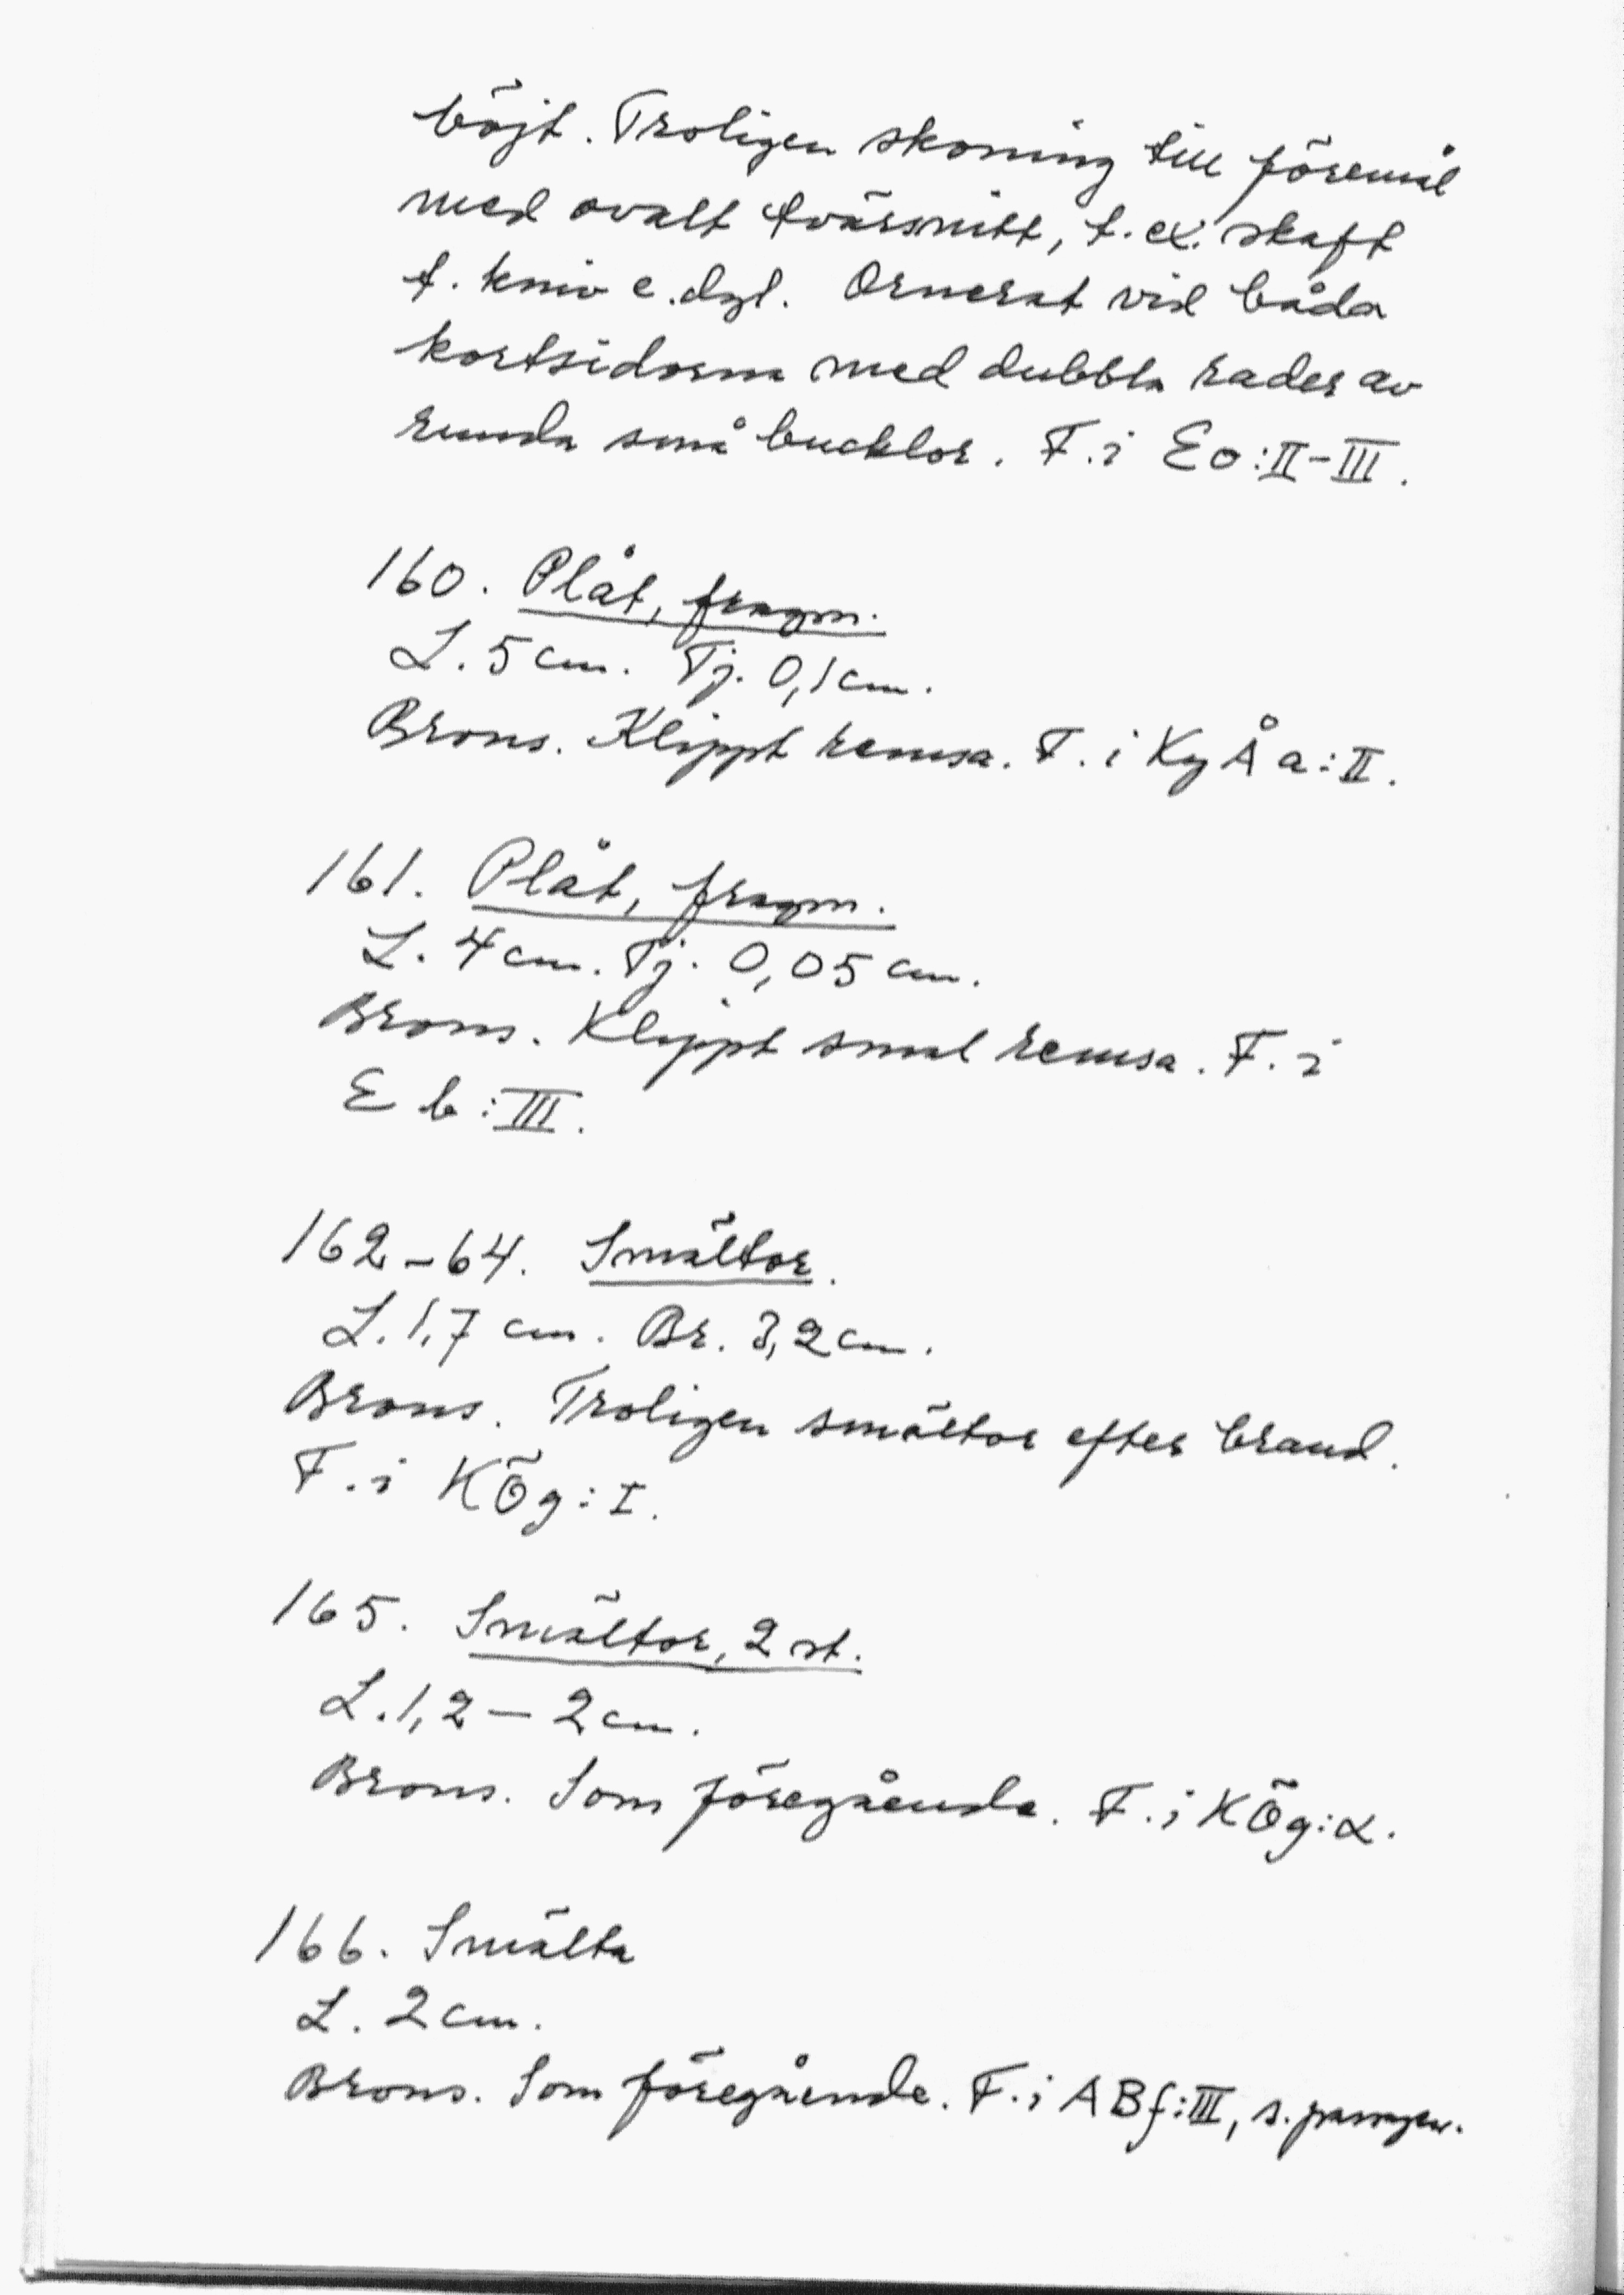 böjt. Troligen skoning till föremål
med ovalt tvärsnitt, t.ex. skaft
t. kniv e.dyl. Ornerat vid båda
kortsidorna med dubbla rader av
runda små bucklor. F.i Eo:II-III.
160. Plåt, fragm.
L. 5 cm. Tj. 0,1 cm.
Brons. Klippt remsa. F. i Ky Å a:II.
161. Plåt, fragm.
L. 4 cm. Tj. 0,05 cm.
Brons. Klippt smal remsa. F. i
E b:III.
162-64. Smältor.
L. 1,7 cm. Br. 3,2 cm.
Brons. Troligen smältor efter brand.
F. i KÖg:I.
165. Smältor, 2 st.
L. 1,2 - 2 cm.
Brons. Som föregående. F. i KÖg:α.
166. Smälta
L. 2 cm.
Brons. Som föregående. F. i ABf:III, s. passagen.